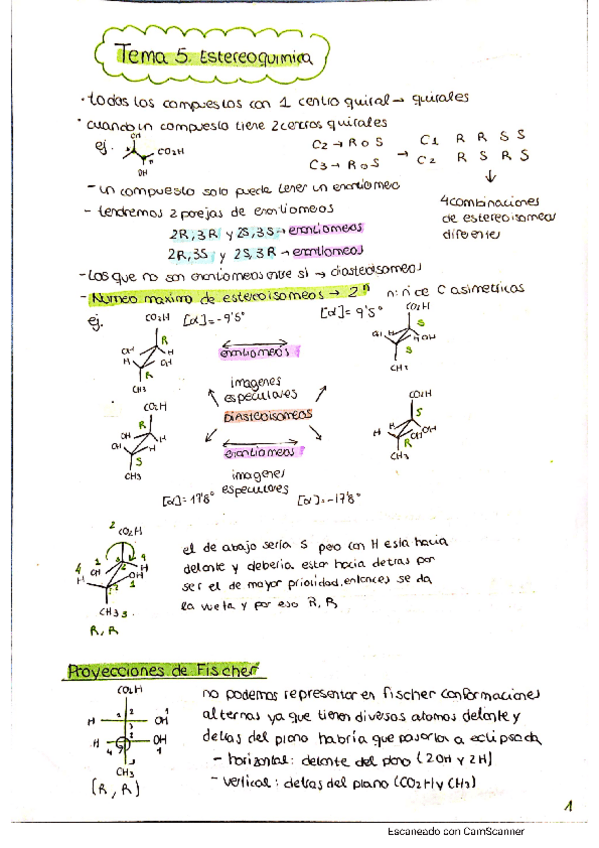 Tema 5. Estereoquimica
· todos los compuestos con 1 centro quiral → quirales
· cuando un compuesto tiene 2 centros quirales
ej.
OH
CO2H
OH
C2 → R o S
C3 → R o S
→
C1 R R S S
C2 R S R S
- un compuesto solo puede tener un enantiomero
- tendremos 2 parejas de enantiomeros
4 combinaciones
de estereoisomeros
diferentes
2R, 3R y 2S, 3S → enantiomeros
2R, 3S y 2S, 3R → enantiomeros
- Los que no son enantiomeros entre si → diastereoisomeros
- Numero maximo de estereoisomeros → 2ⁿ n: nº de C asimetricos
ej.
CO2H [α]= -9'5° [α]= 9'5° CO2H
R S
OH H H OH
H OH S
R
CH3 CH3
enantiomeros
imagenes
especulares
Diastereoisomeros
CO2H CO2H
R S
OH H H OH
OH H OH
S R
CH3 CH3
enantiomeros
imagenes
especulares
[α]= 17'8° [α]= -17'8°
2 CO2H
4 OH H
H OH 1
CH3 3
R, R
el de abajo sería S pero con H esta hacia
delante y deberia estar hacia detras por
ser el de mayor prioridad, entonces se da
la vuelta y por eso R, R
Proyecciones de Fischer
CO2H
H OH 1
H OH
CH3
(R, R)
no podemos representar en Fischer conformaciones
alternas ya que tienen diversos atomos delante y
detras del plano habría que pasarlos a eclipsada
- horizontal: delante del plano (2OH y 2H)
- vertical: detras del plano (CO2H y CH3)
1
Escaneado con CamScanner